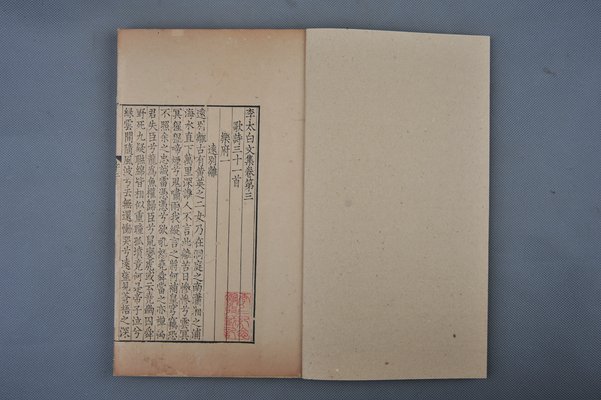 李太白文集卷第三
歌詩三十一首
樂府一
遠別離
遠別離古有黃英之二女乃在洞庭之南瀟湘之浦
海水直下萬里深誰人不言此離苦日慘慘兮雲冥
冥猩猩啼煙兮鬼嘯雨我縱言之將何補皇穹竊恐
不照余之忠誠雲憑憑兮欲吼怒堯舜當之亦禪禹
君失臣兮龍爲魚權歸臣兮鼠變虎或云堯幽囚舜
野死九疑聯綿皆相似重瞳孤墳竟何是帝子泣兮
綠雲間隨風波兮去無還慟哭兮遠望見蒼梧之深